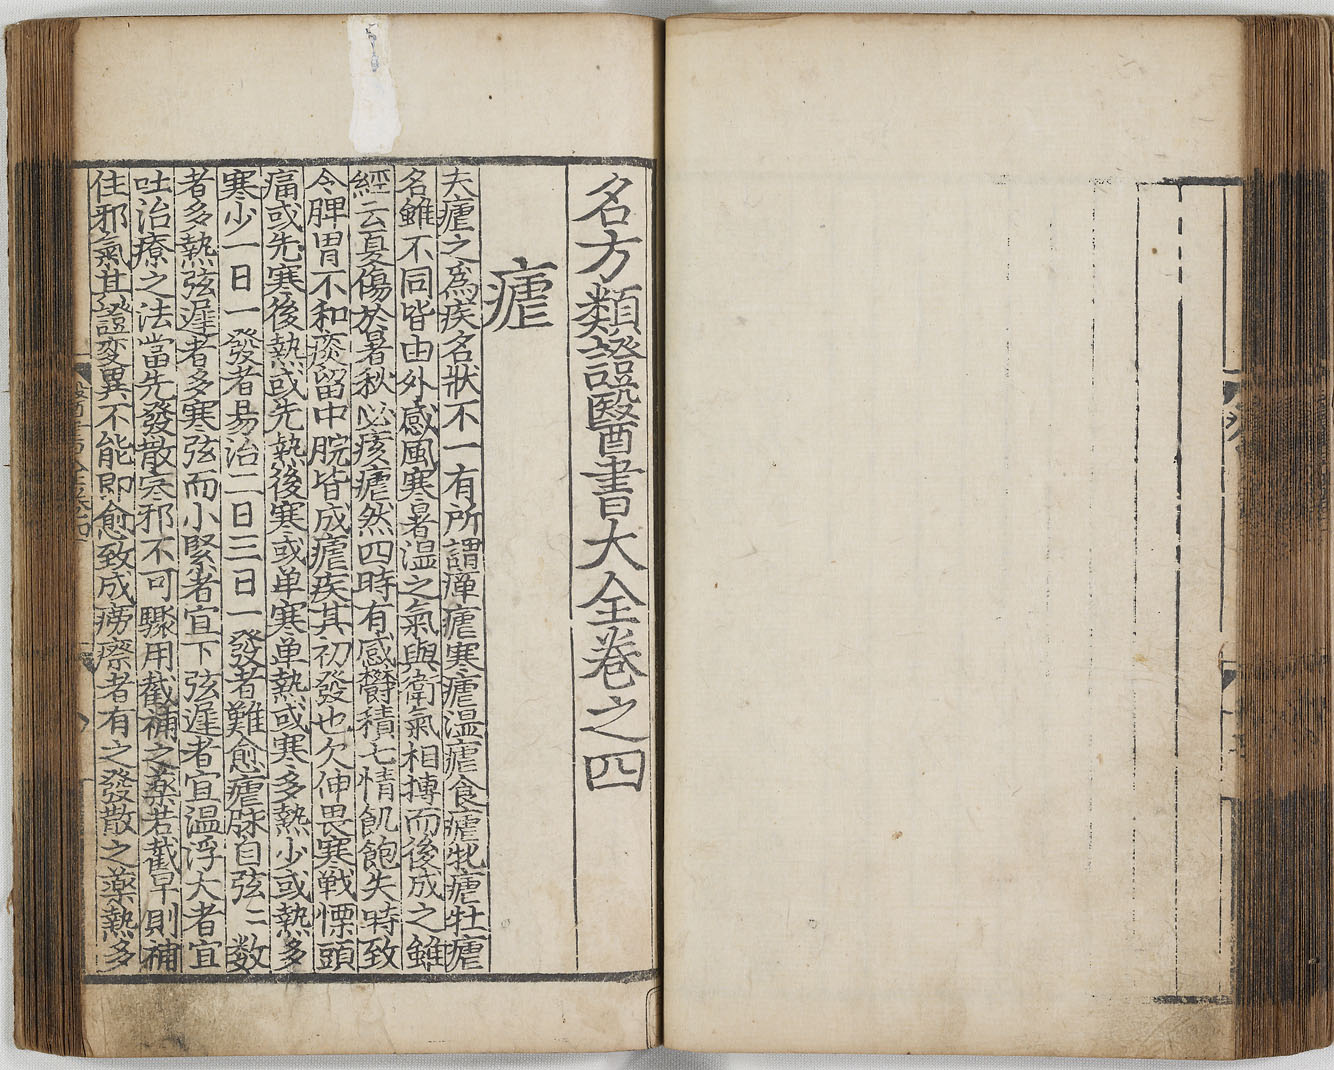 名方類證醫書大全卷之四
瘧
夫瘧之爲疾名狀不一有所謂瘅瘧寒瘧温瘧食瘧牝瘧牡瘧
名雖不同皆由外感風寒暑温之氣與衛氣相摶而後成之雖
經云夏傷於暑秋必痎瘧然四時有感欝積七情飢飽失時致
令脾胃不和痰留中脘皆成瘧疾其初發也欠伸畏寒戦慄頭
痛或先寒後熱或先熱後寒或单寒单熱或寒多熱少或熱多
寒少一日一發者易治二日三日一發者難愈瘧脉自弦〻数
者多熱弦遲者多寒弦而小緊者宜下弦遲者宜温浮大者宜
吐治療之法當先發散寒邪不可驟用截補之薬若截早則補
住邪氣其證变異不能即愈致成痨瘵者有之發散之薬熱多